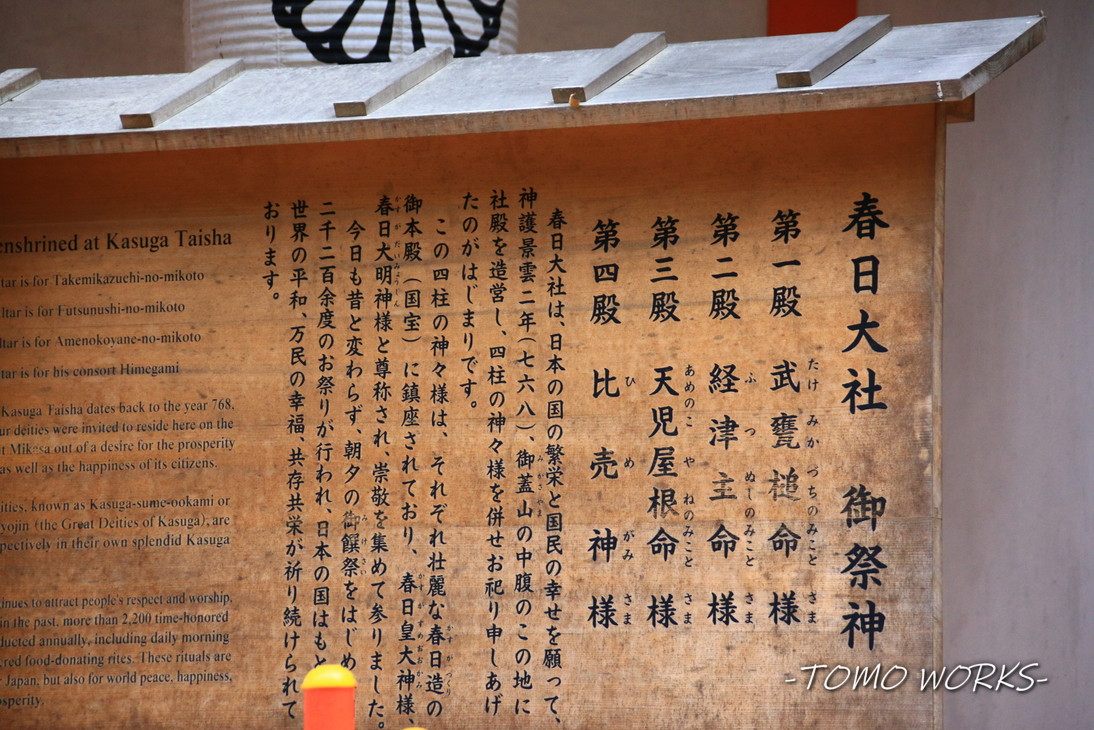 春日大社 御祭神
第一殿 武甕槌命様
たけ みか づちのみこと さま
第二殿 経津主命様
ふ つ ぬしのみこと さま
第三殿 天児屋根命様
あめのこ や ねのみこと さま
第四殿 比売神様
ひ め がみ さま
春日大社は、日本の国の繁栄と国民の幸せを願って、
神護景雲二年(七六八)、御蓋山の中腹のこの地に
みかさやま
社殿を造営し、四柱の神々様を併せお祀り申しあげ
たのがはじまりです。
この四柱の神々様は、それぞれ壮麗な春日造の
かすがづくり
御本殿(国宝)に鎮座されており、春日皇大神様、
かすがすめおおかみ
春日大明神様と尊称され、崇敬を集めて参りました。
かすがだいみょうじん
今日も昔と変わらず、朝夕の御饌祭をはじめ
みけさい
二千二百余度のお祭りが行われ、日本の国はもと
世界の平和、万民の幸福、共存共栄が祈り続けられて
おります。
enshrined at Kasuga Taisha
ltar is for Takemikazuchi-no-mikoto
ltar is for Futsunushi-no-mikoto
ltar is for Amenokoyane-no-mikoto
ltar is for his consort Himegami
Kasuga Taisha dates back to the year 768,
ur deities were invited to reside here on the
t Mikasa out of a desire for the prosperity
as well as the happiness of its citizens.
ities, known as Kasuga-sume-ookami or
yojin (the Great Deities of Kasuga), are
pectively in their own splendid Kasuga
inues to attract people's respect and worship,
in the past, more than 2,200 time-honored
ducted annually, including daily morning
red food-donating rites. These rituals are
Japan, but also for world peace, happiness,
osperity.
-TOMO WORKS-